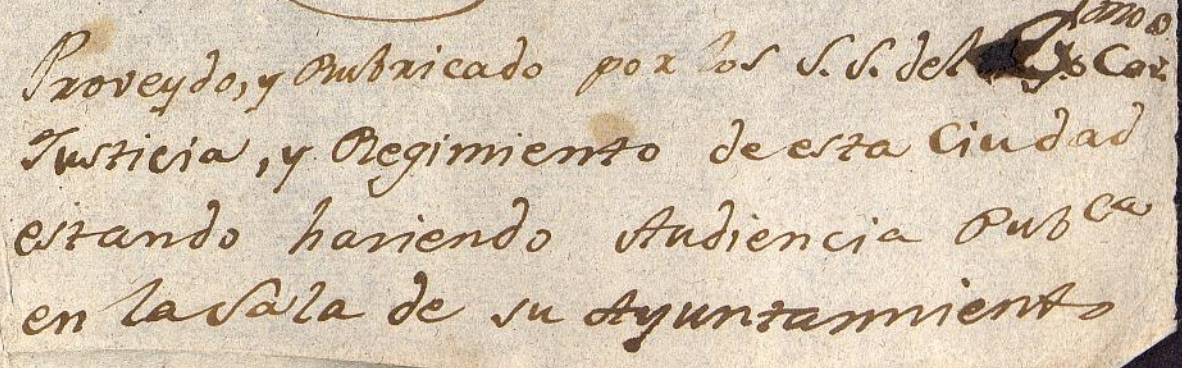 Proveydo, y Rubricado por los S.S. del Cav.
Justicia, y Regimiento de esta Ciudad
estando hasiendo Audiencia Pubca
en la Sala de su Ayuntamiento